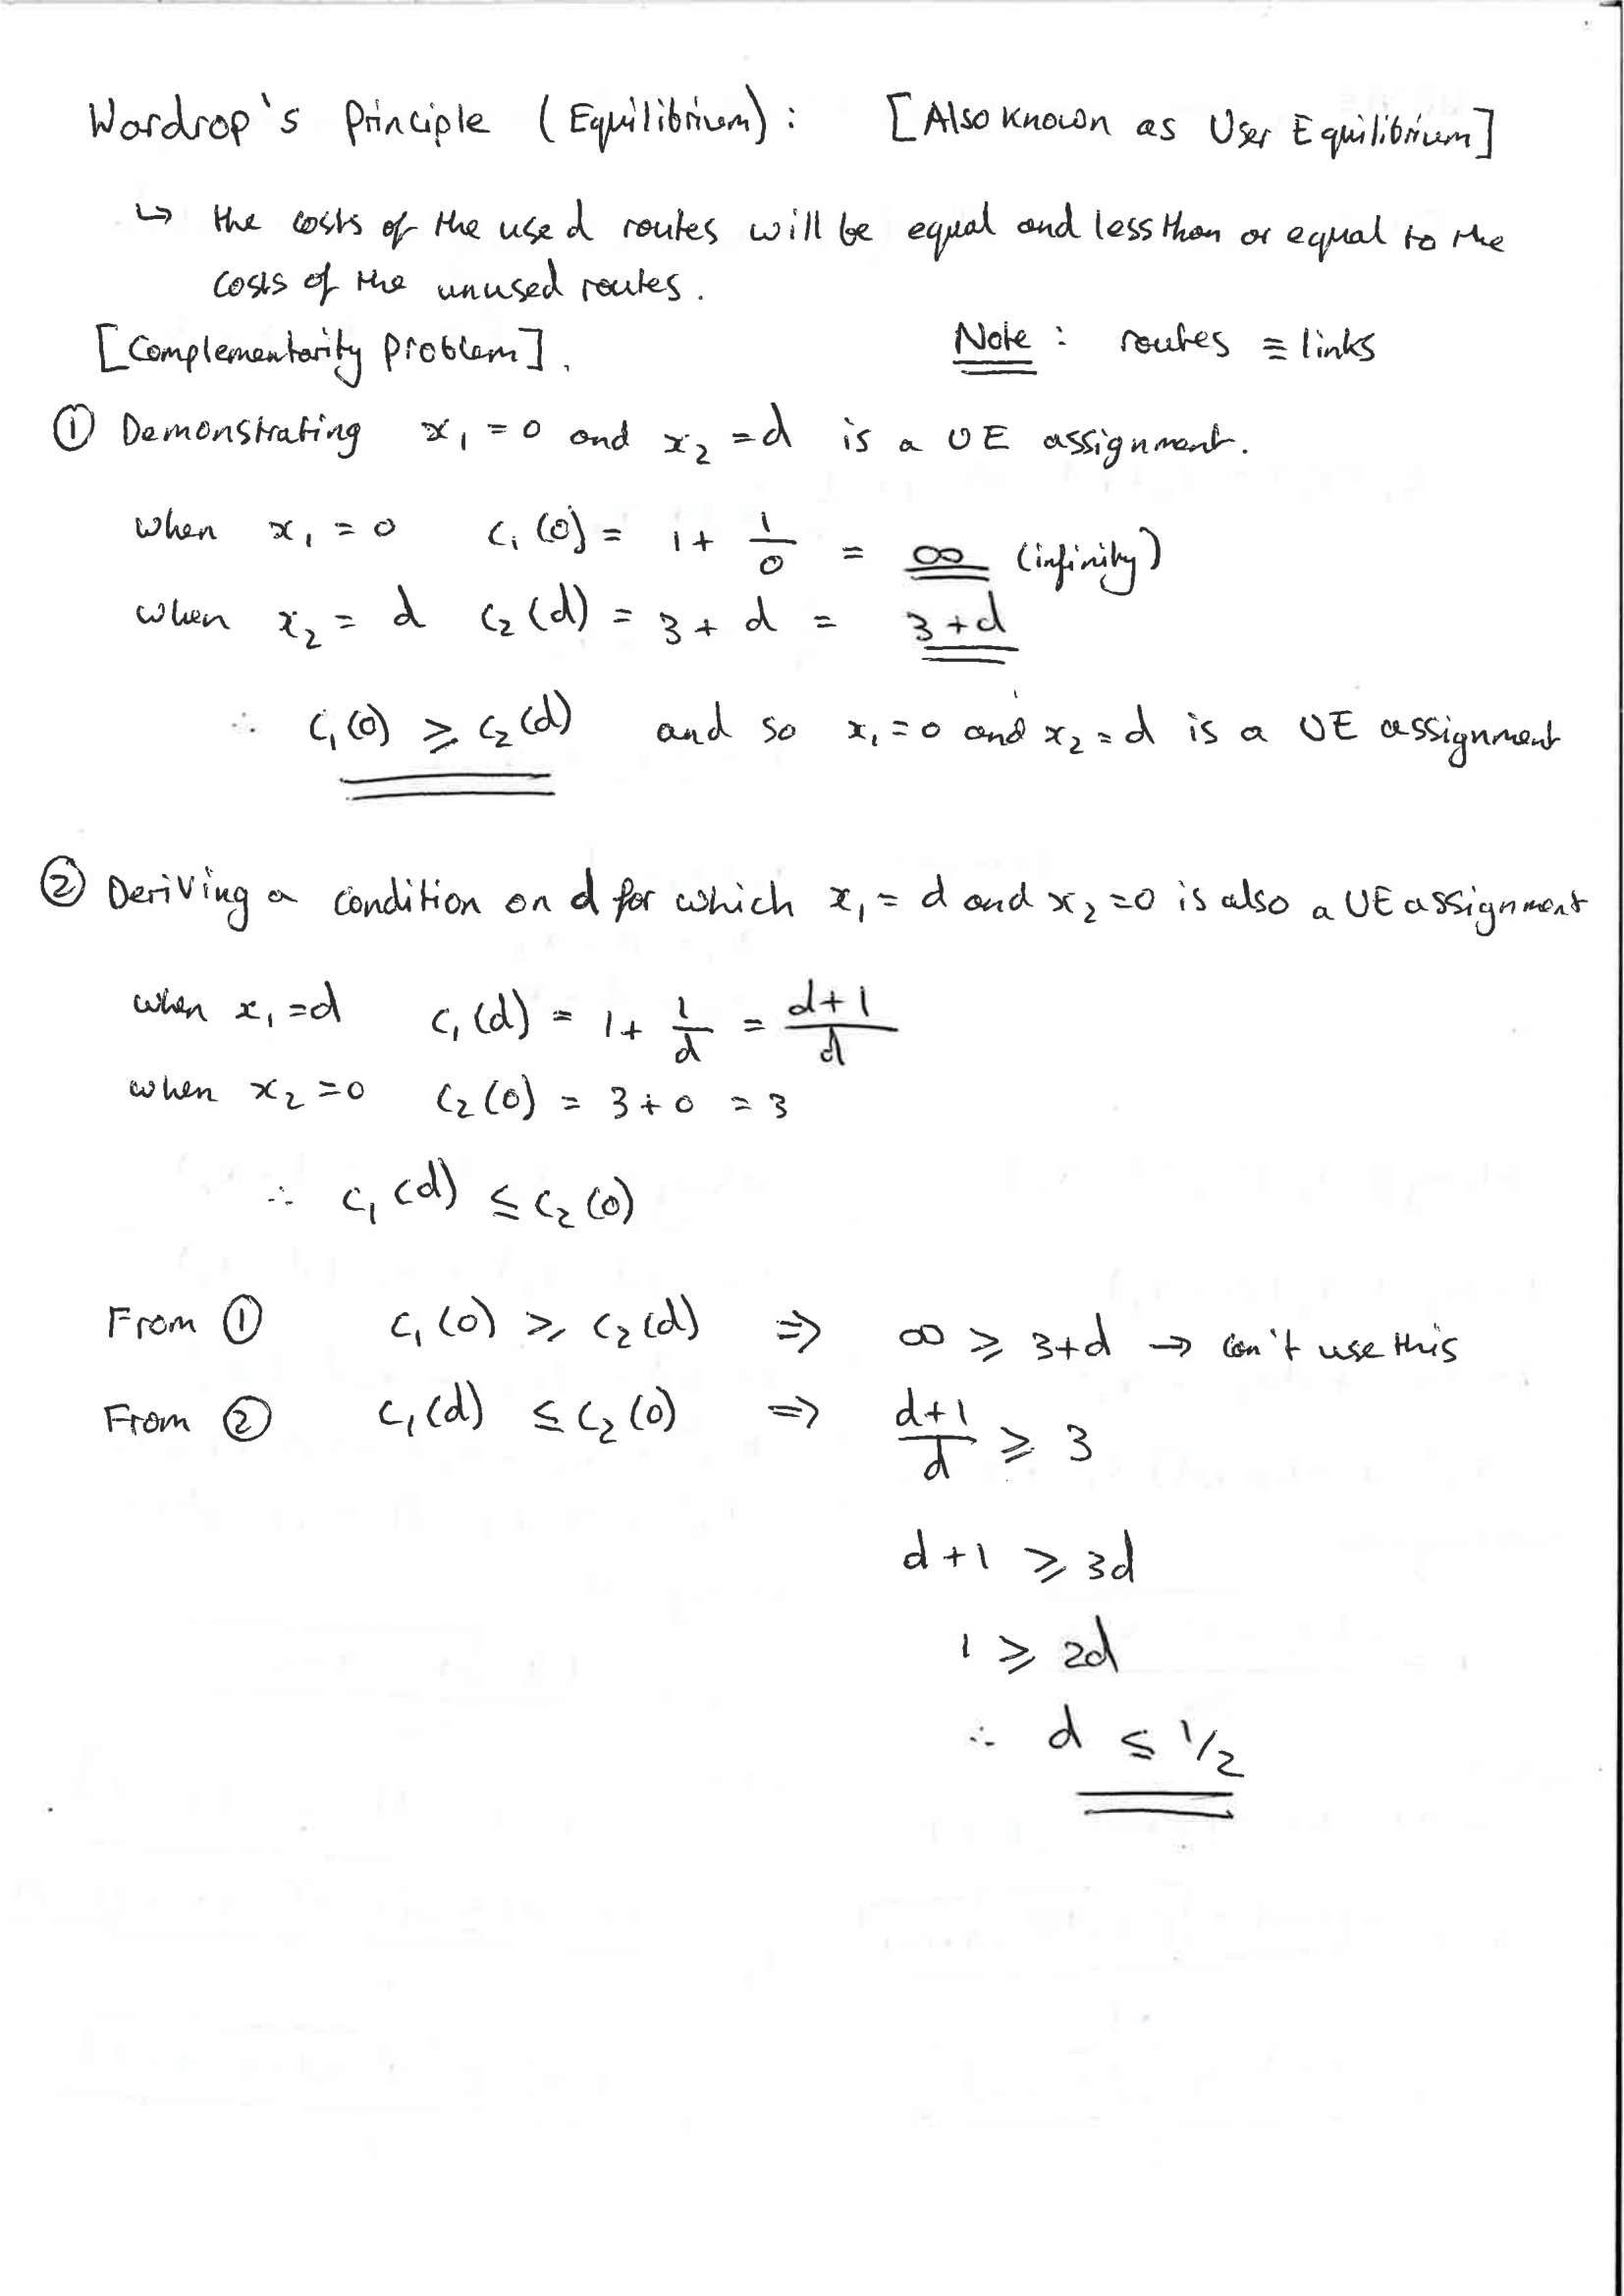 Wardrop's Principle (Equilibrium): [Also known as User Equilibrium]
↳ the costs of the used routes will be equal and less than or equal to the
costs of the unused routes.
[Complementarity Problem]. Note: routes ≡ links
① Demonstrating x₁ = 0 and x₂ = d is a UE assignment.
when x₁ = 0 c₁(0) = 1 + 1/0 = ∞ (infinity)
when x₂ = d c₂(d) = 3 + d = 3+d
∴ c₁(0) ≥ c₂(d) and so x₁ = 0 and x₂ = d is a UE assignment
② Deriving a condition on d for which x₁ = d and x₂ = 0 is also a UE assignment
when x₁ = d c₁(d) = 1 + 1/d = (d+1)/d
when x₂ = 0 c₂(0) = 3 + 0 = 3
∴ c₁(d) ≤ c₂(0)
From ① c₁(0) ≥ c₂(d) ⇒ ∞ ≥ 3+d → can't use this
From ② c₁(d) ≤ c₂(0) ⇒ (d+1)/d ≥ 3
d+1 ≥ 3d
1 ≥ 2d
∴ d ≤ 1/2